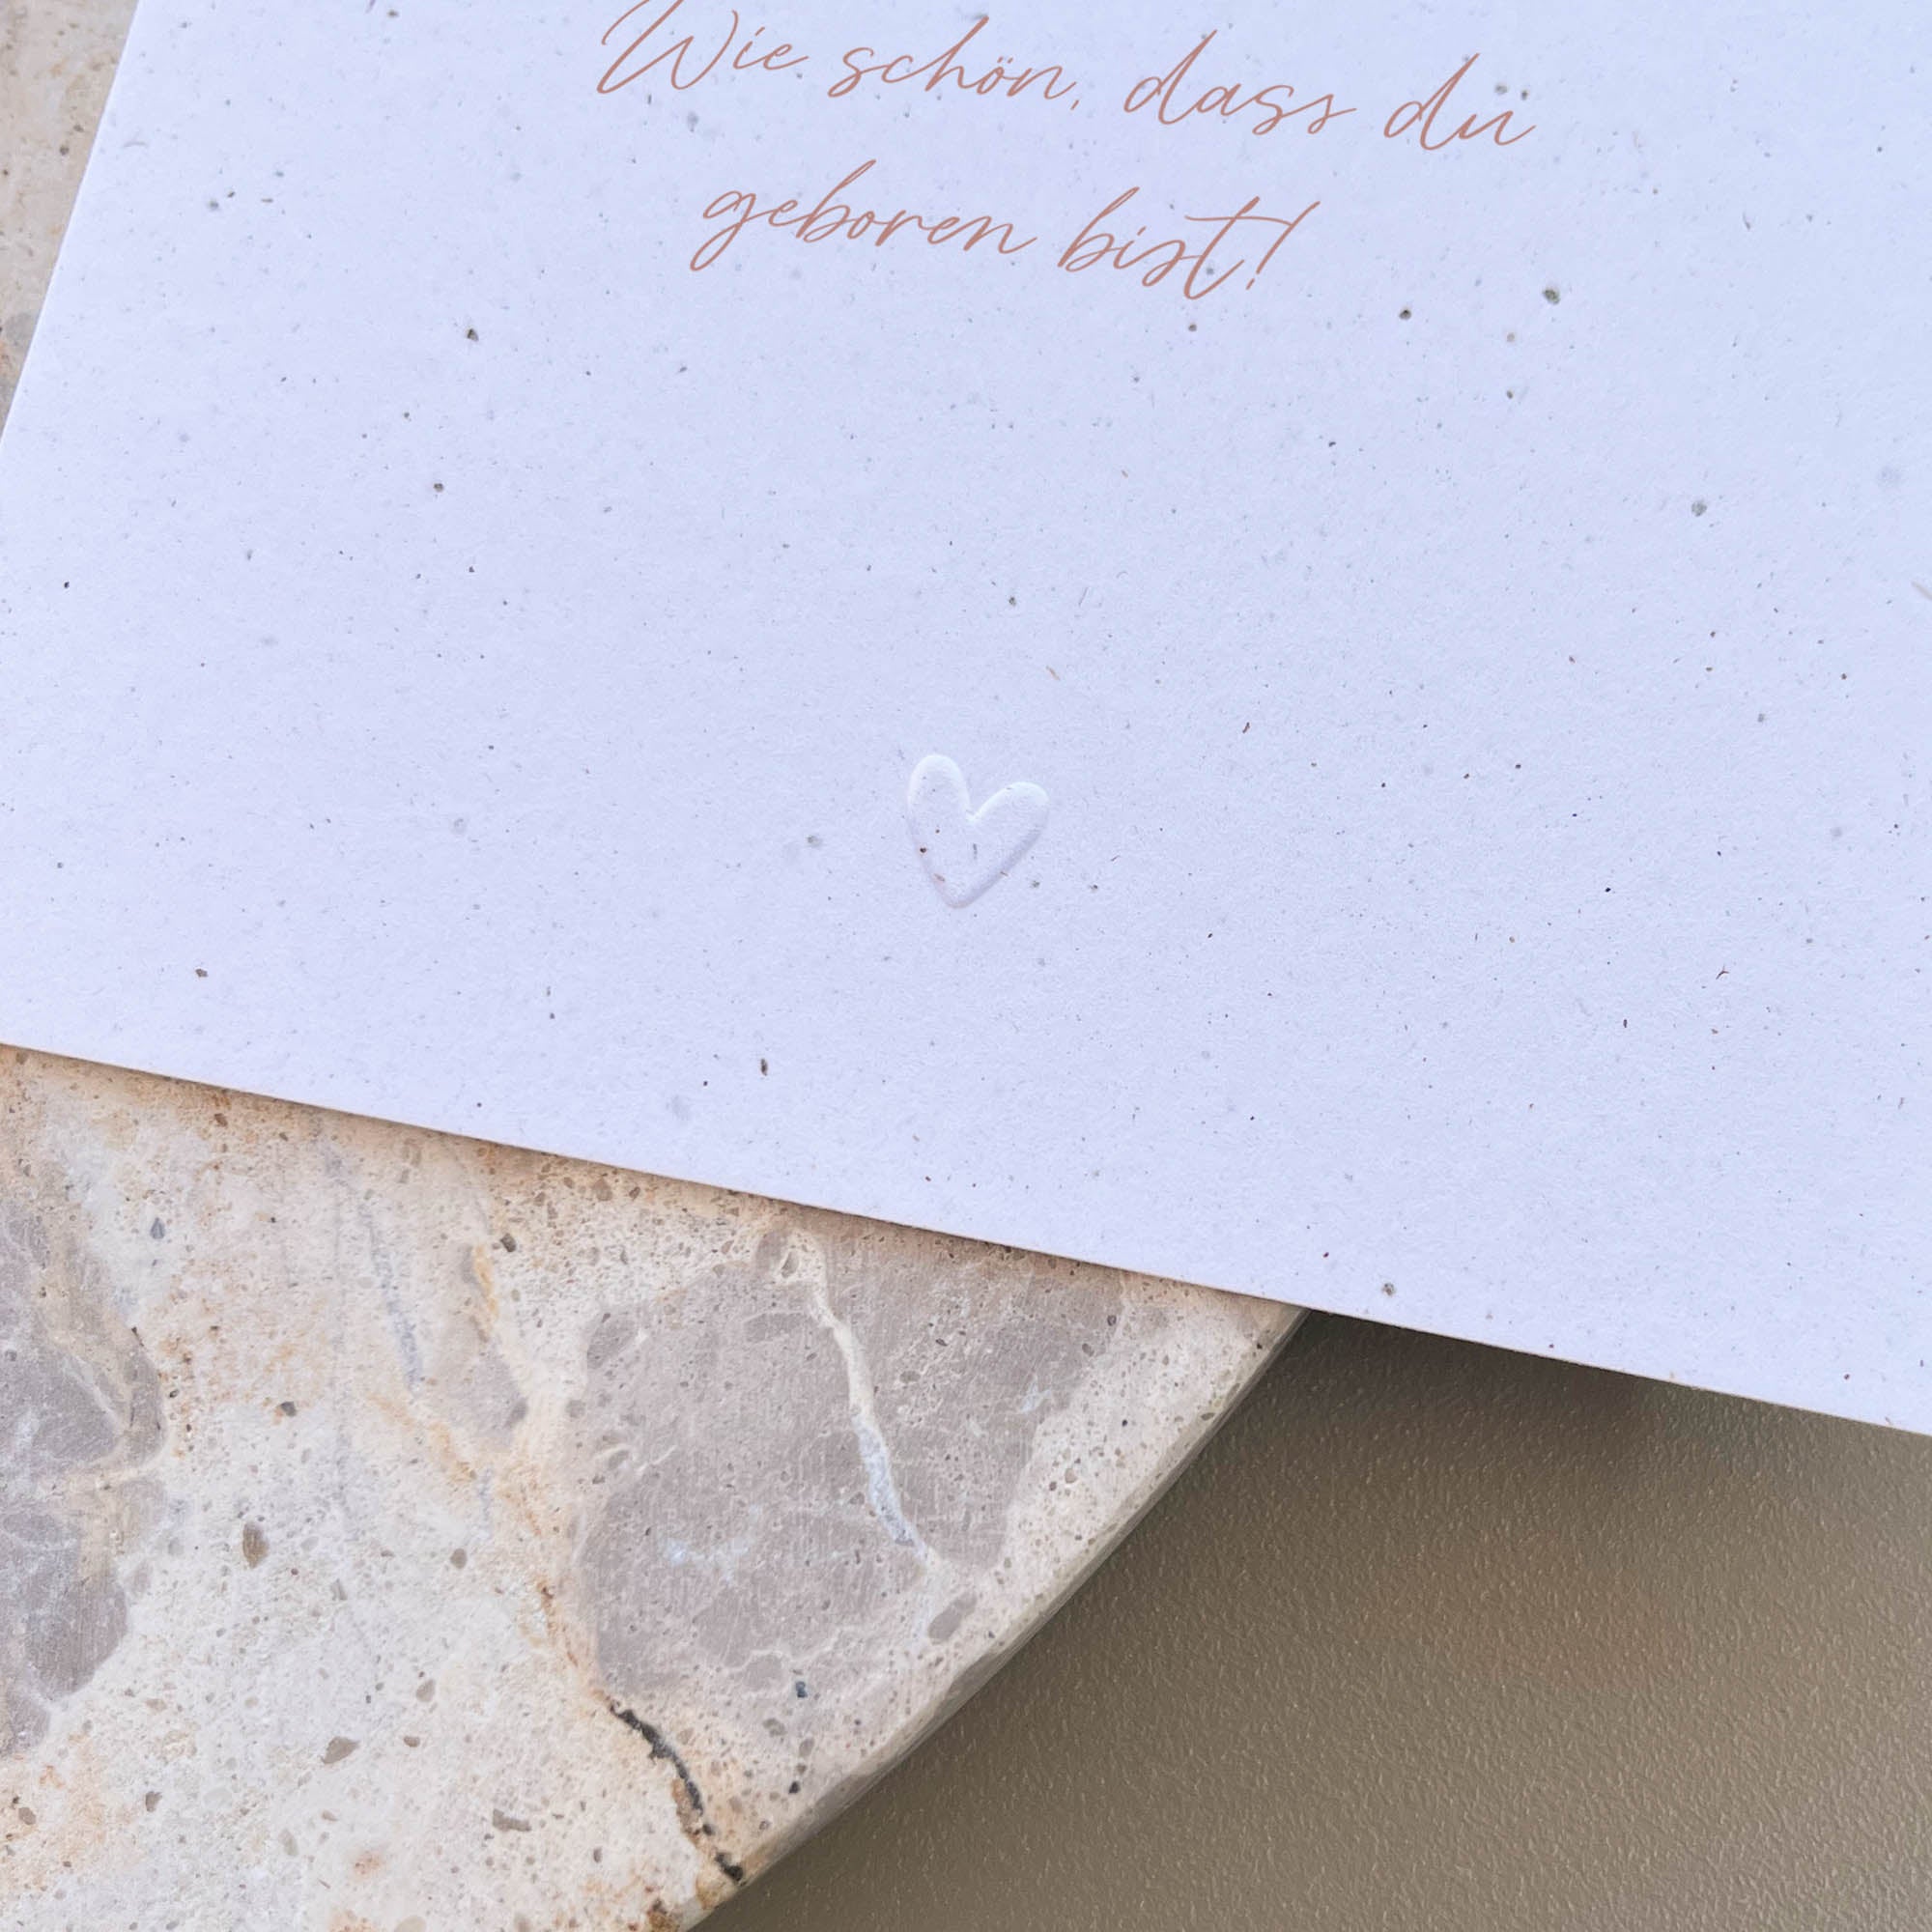 Wie schön, dass du
geboren bist!